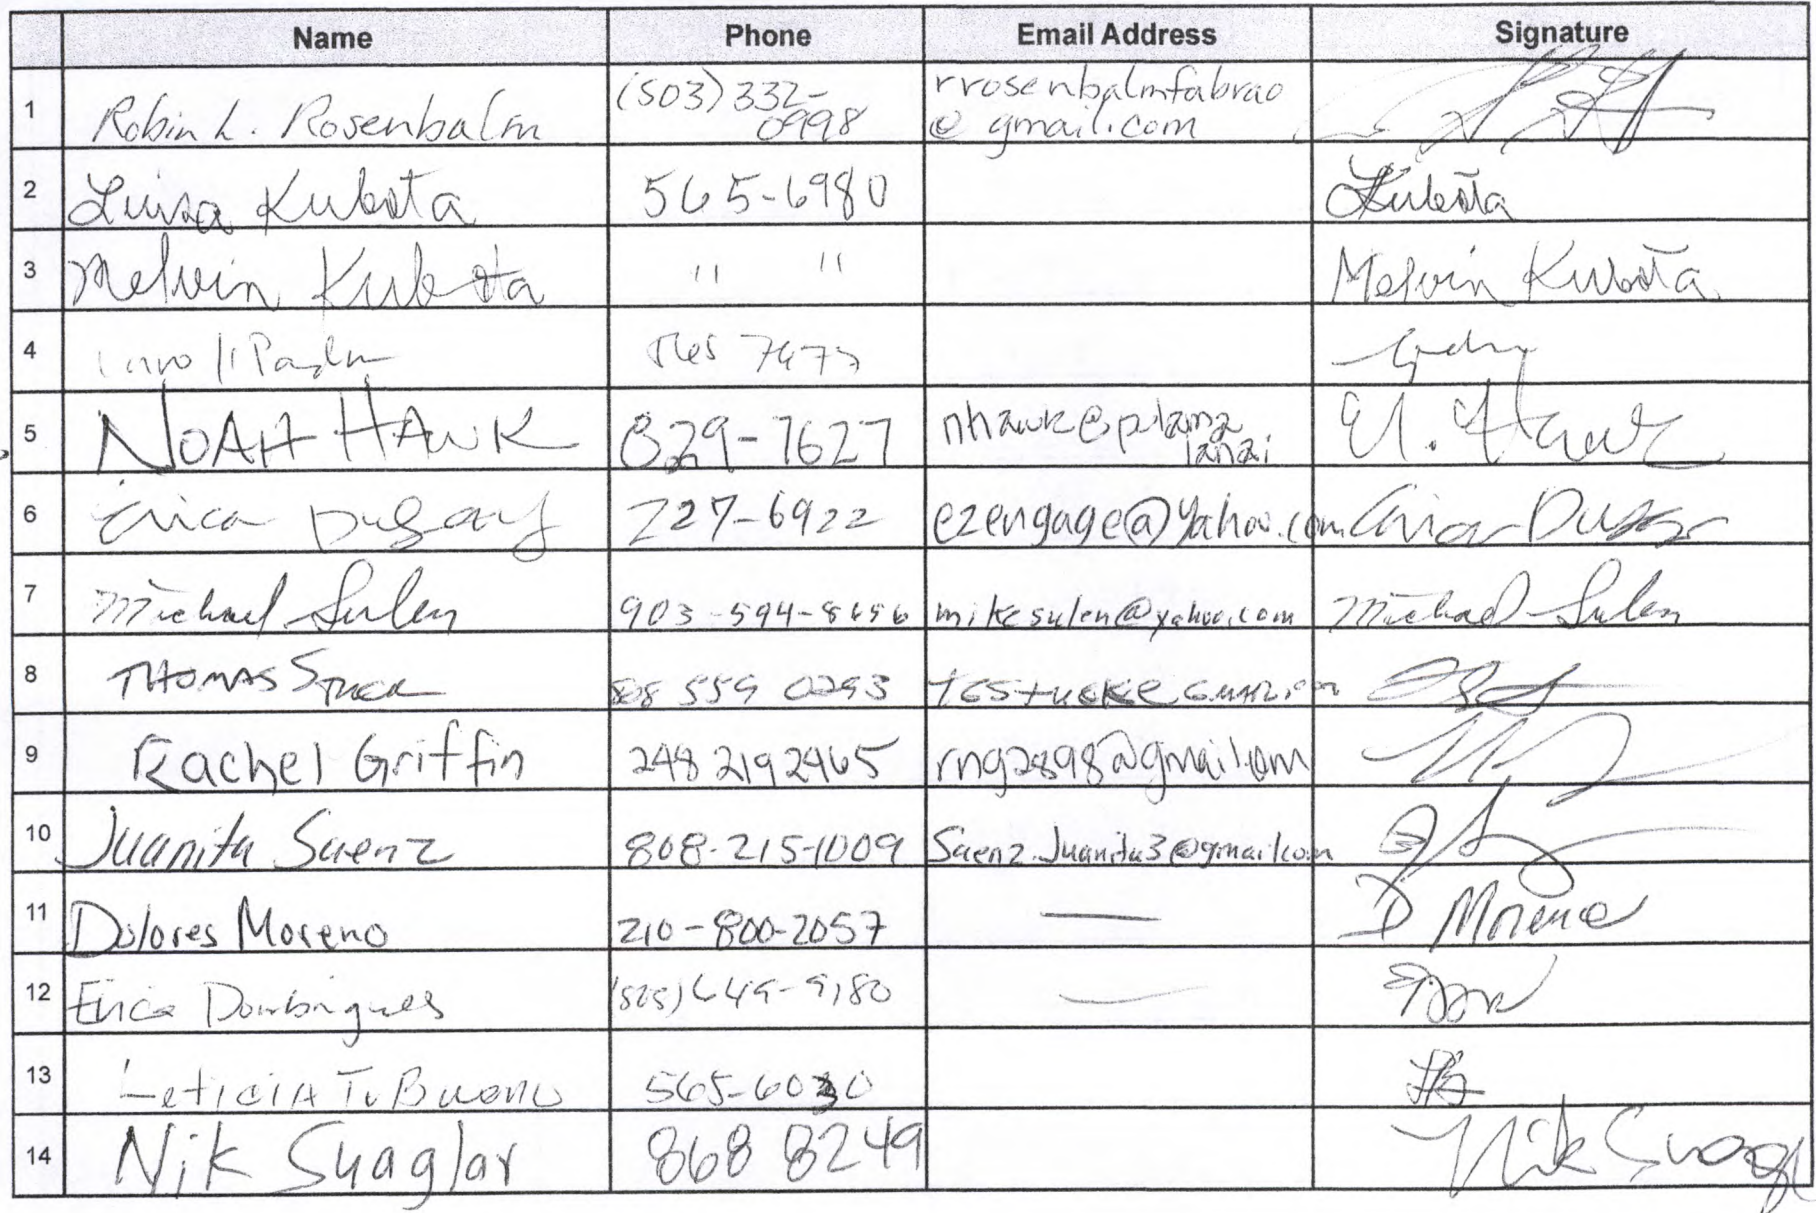 Name Phone Email Address Signature
1 Robin L. Rosenbalm (503) 332- rrosenbalmfabrao
0998 @ gmail.com
2 Luisa Kubota 565-6980 Kubota
3 Melvin Kubota " " Melvin Kubota
4
5 NOAH HAWK 829-7627 nhawk@pulama N. Hawk
lanai
6 Erica 227-6922 ezengage@yahoo.com Erica
7 Michael Sulen 903-594-8656 mikesulen@yahoo.com Michael Sulen
8 THOMAS 559 0293
9 Rachel Griffin 248 219 2465 rng2898@gmail.com
10 Juanita Saenz 808-215-1009 Saenz.Juanita3@gmail.com
11 Dolores Moreno 210-800-2057 — D Moreno
12 649-9180 —
13 Leticia T. Bueno 565-6030
14 Nik Suaglar 868 8249 Nik